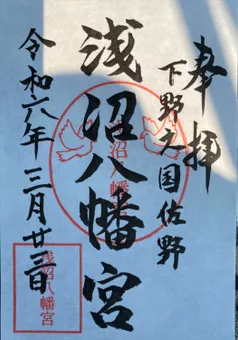 奉拝
下野之国佐野
浅沼八幡宮
浅沼八幡宮
令和六年三月廿三日
浅沼八幡宮